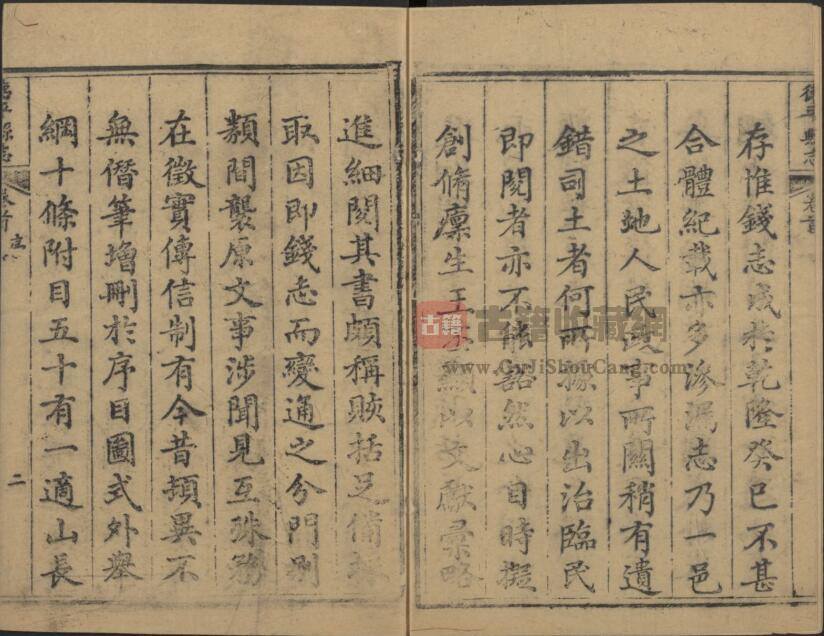 德平縣志
卷首
存惟錢志成於乾隆癸巳不甚
合體紀載亦多滲漏志乃一邑
之土地人民政事所關稍有遺
錯司土者何所據以出治臨民
即閱者亦不能豁然心目時擬
創脩廩生王 以文獻彙略
進細閱其書頗稱賅括足備
取因即錢志而變通之分門別
類間襲原文事涉聞見互殊務
在徵實傳信制有今昔頓異不
無僭筆增刪於序目圖式外舉
綱十條附目五十有一適山長
德平縣志
卷首
二
古籍
古籍收藏網
www.GuJiShouCang.com